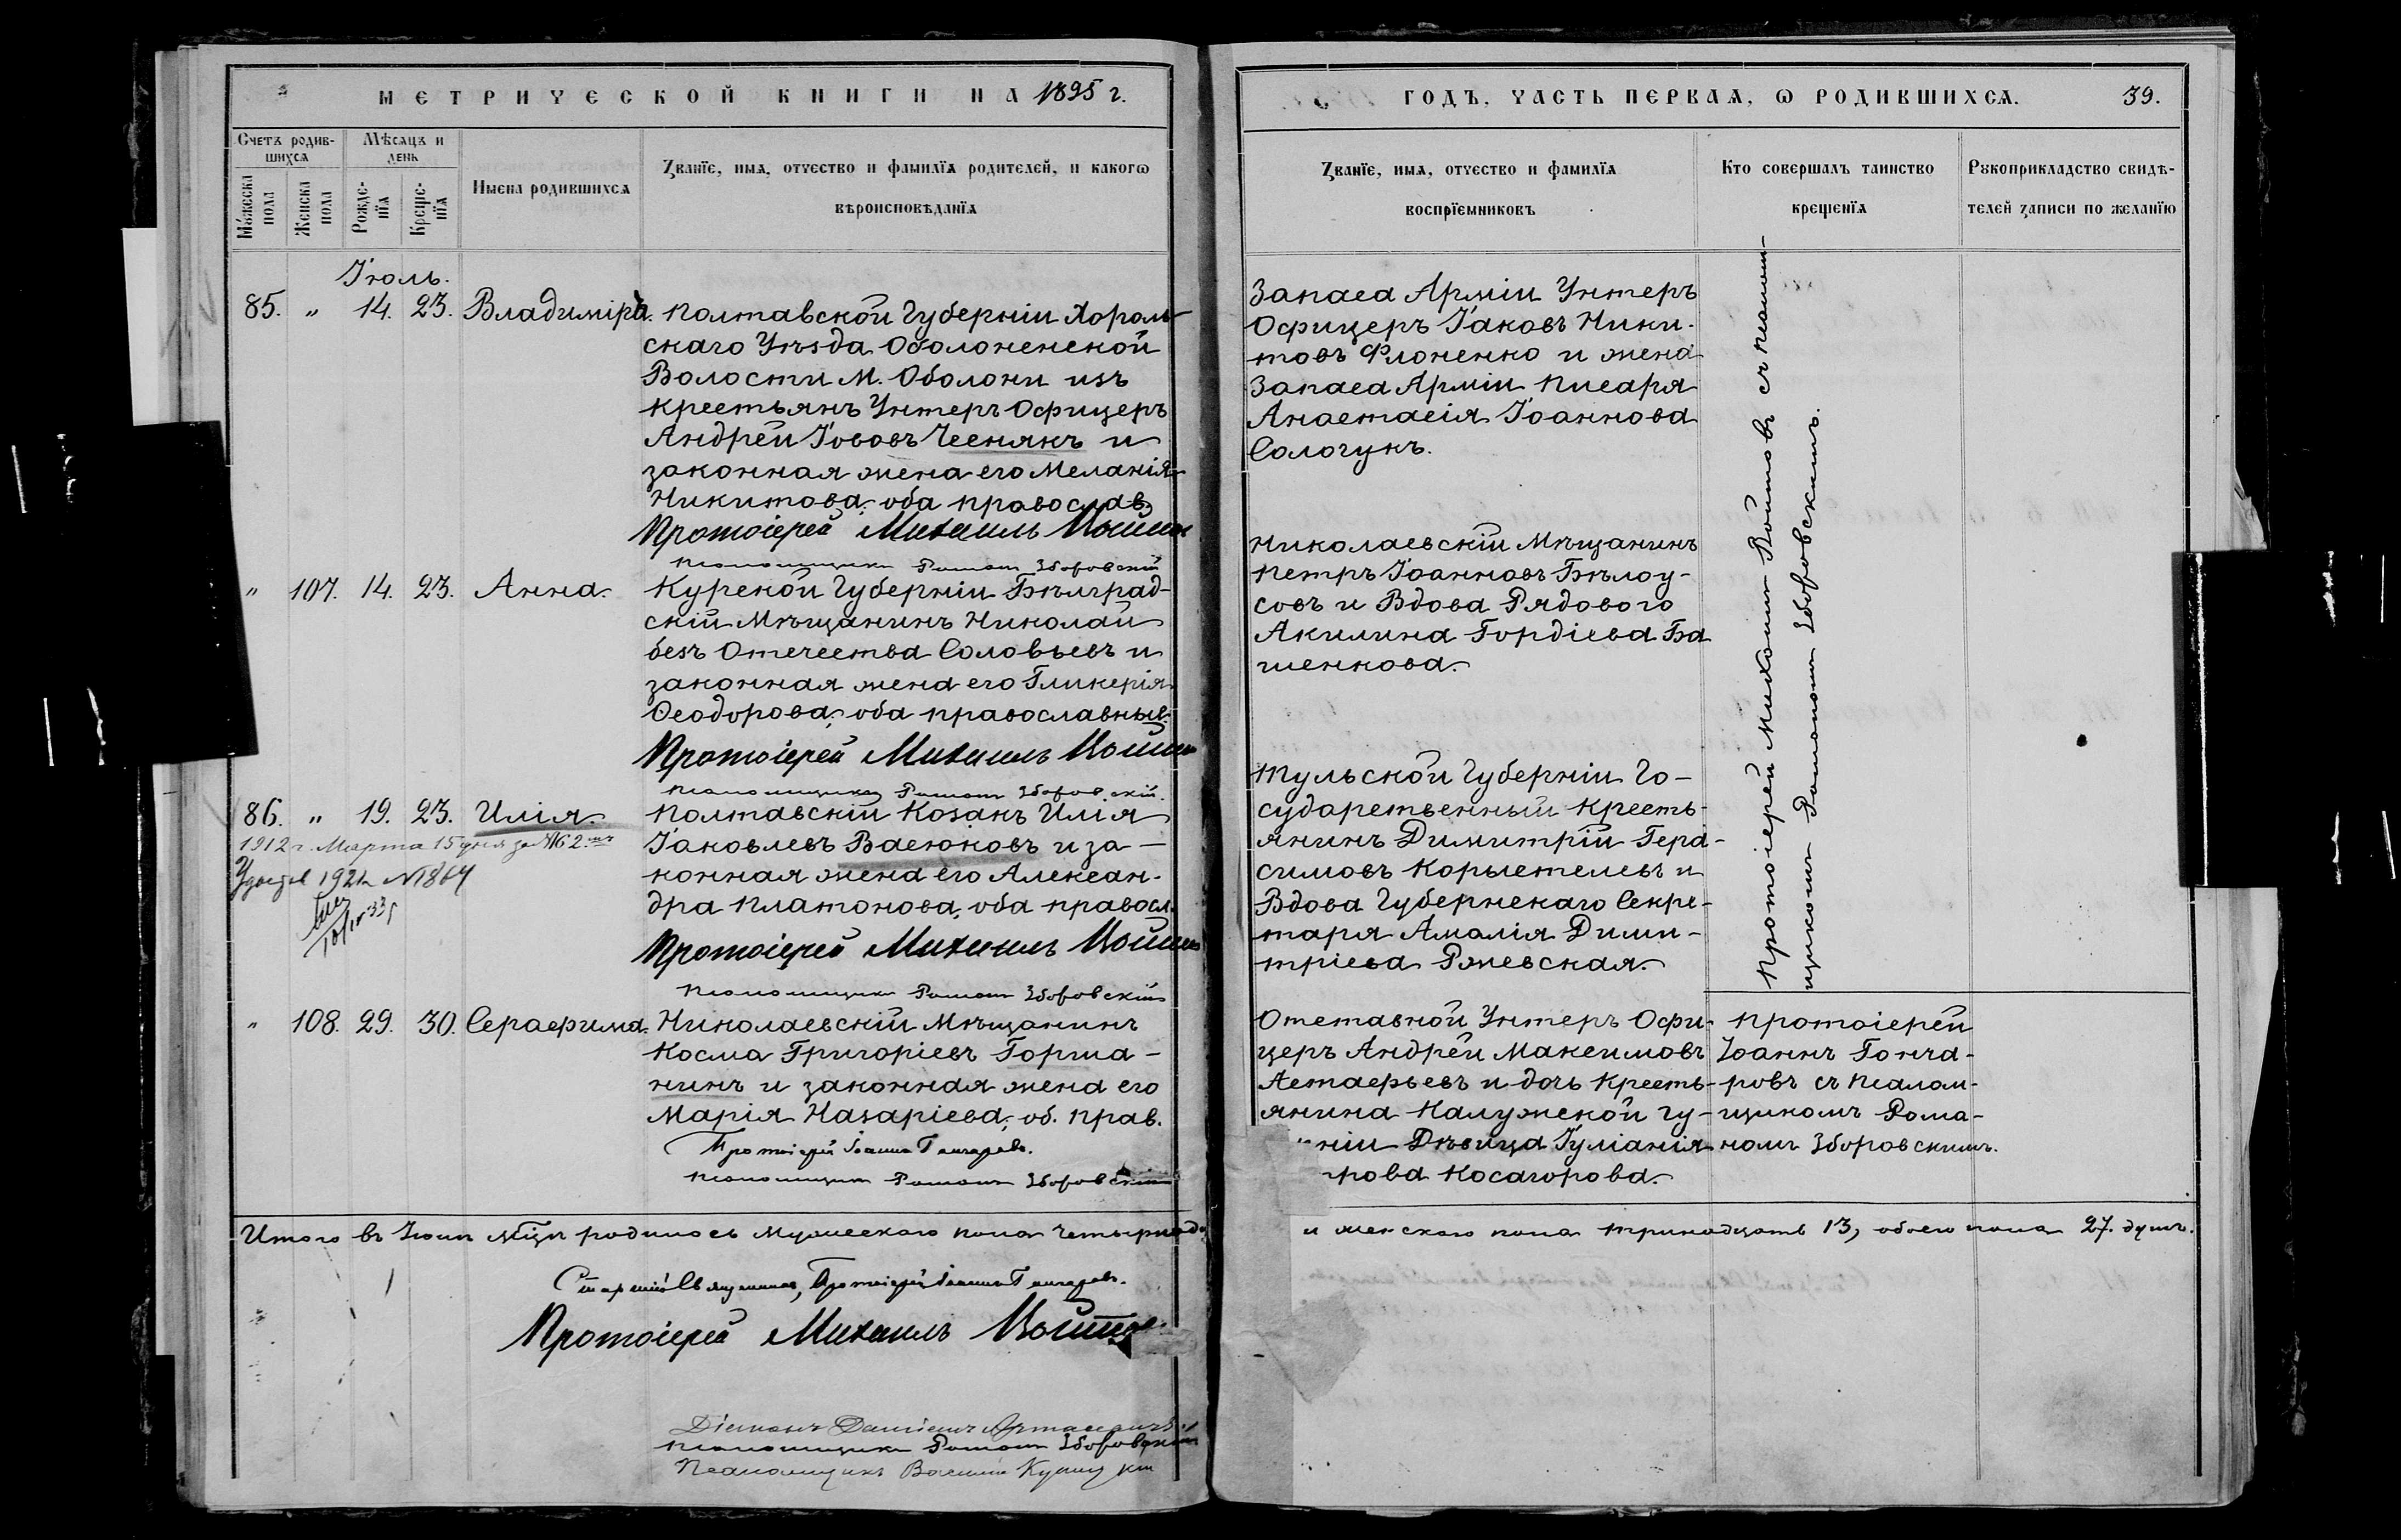 МЕТРИЧЕСКОЙ КНИГИ НА 1895 г.
Счетъ родив-
шихся
Мѣсяцъ и
день
Мꙋжеска
пола
Женска
пола
Рожде-
нїя
Креще-
нїя
Имена родившихся
Званїе, имя, отчество и фамилїя родителей, и какогѡ
вѣроисповѣданїя
Іюль.
85. " 14. 23. Владиміръ.
Полтавской Губерніи Хороль-
скаго Уѣзда Оболоненской
Волости М. Оболони изъ
крестьянъ Унтеръ Офицеръ
Андрей Іововъ Чеснякъ и
законная жена его Меланія
Никитова, оба православ.
Протоіерей Михаилъ Войтовъ
Псаломщикъ Романъ Зборовскій
" 107. 14. 23. Анна.
Курской Губерніи Бѣлград-
скій Мѣщанинъ Николай
безъ Отечества Соловьевъ и
законная жена его Гликерія
Ѳеодорова, оба православные.
Протоіерей Михаилъ Войтовъ
Псаломщикъ Романъ Зборовскій.
86. " 19. 23. Илія.
1912 г. Марта 15 дня за № 62.
1921 №1864
Полтавскій Козакъ Илія
Іаковлевъ Васюковъ и за-
конная жена его Алексан-
дра Платонова, оба правосл.
Протоіерей Михаилъ Войтовъ
Псаломщикъ Романъ Зборовскій
" 108. 29. 30. Серафима.
Николаевскій Мѣщанинъ
Косма Григоріевъ Горша-
нинъ и законная жена его
Марія Назаріева, об. прав.
Протоіерей Іоаннъ Гончаровъ.
Псаломщикъ Романъ Зборовскій
Итого въ Іюлѣ мѣцѣ родилось мужескаго пола четырнад
Старшій Священникъ, Протоіерей Іоаннъ Гончаровъ.
Протоіерей Михаилъ Войтовъ
Діаконъ
Псаломщикъ Романъ Зборовскій
Псаломщикъ Василій
ГОДЪ, ЧАСТЬ ПЕРВАЯ, Ѡ РОДИВШИХСЯ. 39.
Званїе, имя, отчество и фамилїя
воспрїемниковъ
Кто совершалъ таинство
крещенїя
Рꙋкоприкладство свидѣ-
телей записи по желанїю
Запаса Арміи Унтеръ
Офицеръ Іаковъ Ники-
товъ Флоненко и жена
Запаса Арміи писаря
Анастасія Іоаннова
Сологукъ.
Николаевскій Мѣщанинъ
Петръ Іоанновъ Бѣлоу-
совъ и Вдова Рядового
Акилина Гордіева Ба
шенкова.
Тульской Губерніи Го-
сударственный Кресть-
янинъ Димитрій Гера-
симовъ Корыстелевъ и
Вдова Губернскаго Секре-
таря Амалія Дими-
тріева Ржевская.
Протоіерей Михаилъ Войтовъ съ псалом-
щикомъ Романомъ Зборовскимъ.
Отставной Унтеръ Офи-
церъ Андрей Максимовъ
Астафьевъ и дочь кресть-
янина Калужской Гу-
ніи Дѣвица Іуліанія
рова Косагорова.
Протоіерей
Іоаннъ Гонча-
ровъ съ псалом-
щикомъ Рома-
номъ Зборовскимъ.
и женскаго пола тринадцать 13, обоего пола 27. душъ.